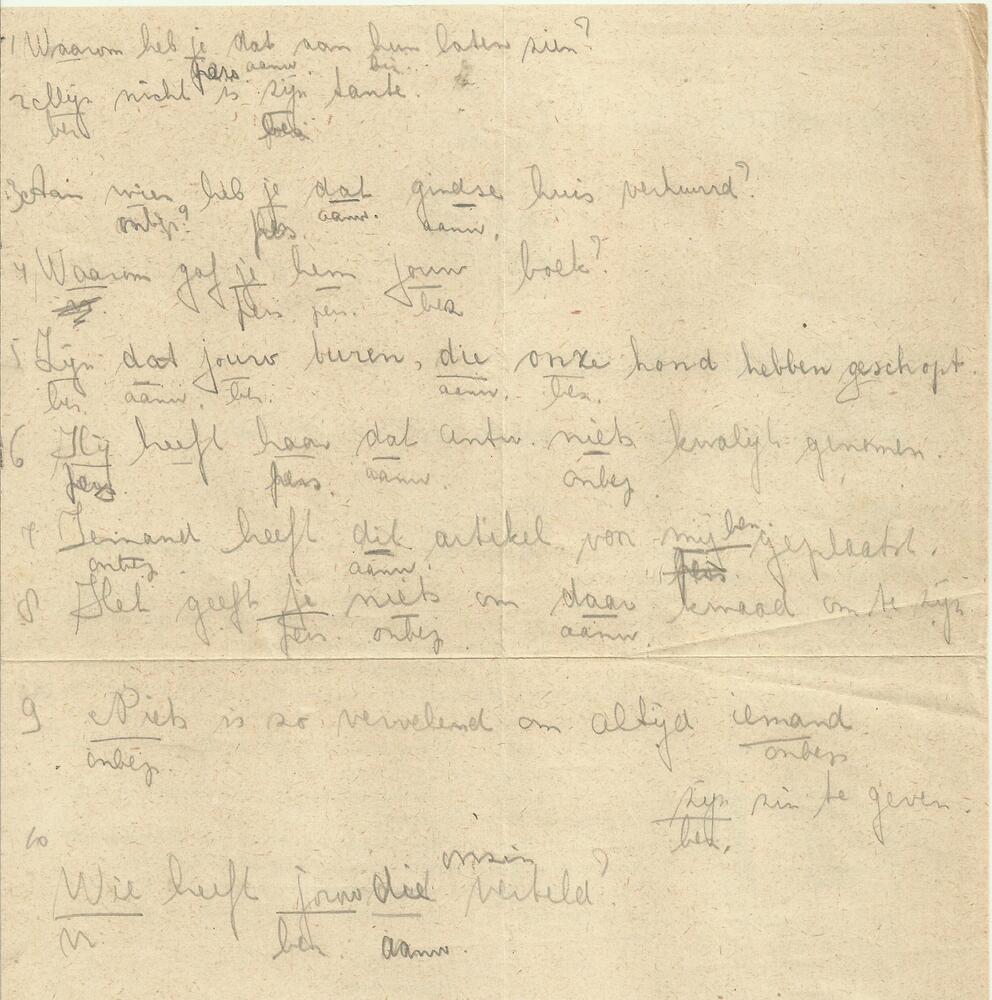 1 Waarom heb je dat aan hun laten zien?
pers. aanw. bez.
2 Mijn nicht is zijn tante.
bez bez
3 Aan wien heb je dat gindse huis verhuurd?
onbep? pers. aanw. aanw.
4 Waarom gaf je hem jouw boek?
pers pers. bez
5 Zijn dat jouw buren, die onze hond hebben geschopt.
bez. aanw. bez. aanw. bez.
6 Hij heeft haar dat antw. niets kwalijk genomen.
pers. pers. aanw. onbep.
7 Iemand heeft dit artikel voor mij geplaatst.
onbep aanw. pers. bez.
8 Het geeft je niets om daar kwaad om te zijn
pers. onbep aanw.
9 Niets is zo vervelend om altijd iemand
onbep. onbep
zijn zin te geven.
bez.
10
onzin
Wie heeft jouw die verteld?
vr. bez. aanw.